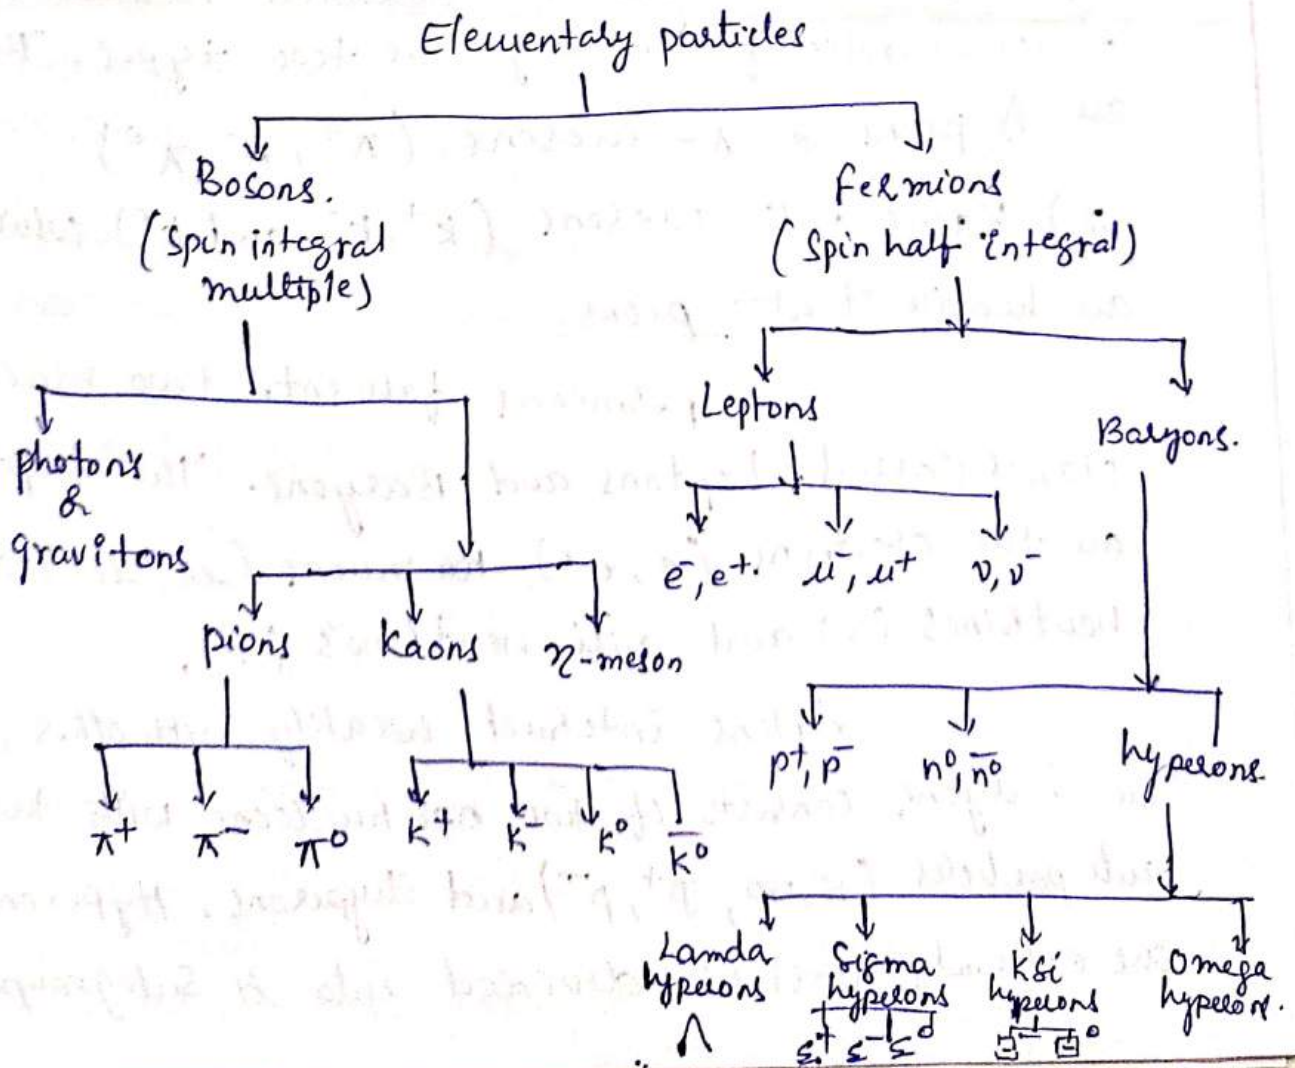 Elementary particles
Bosons.
(spin integral
multiple)
Fermions
(spin half integral)
photons
&
gravitons
Leptons
Baryons.
e⁻, e⁺.
μ⁻, μ⁺
ν, ν⁻
pions
kaons
η-meson
π⁺
π⁻
π⁰
k⁺
k⁻
k⁰
k̅⁰
p⁺, p⁻
n⁰, n̅⁰
hyperons.
Lamda
hyperons
Λ
Sigma
hyperons
Σ⁺ Σ⁻ Σ⁰
Ksi
hyperons
Ξ⁻ Ξ⁰
Omega
hyperons.